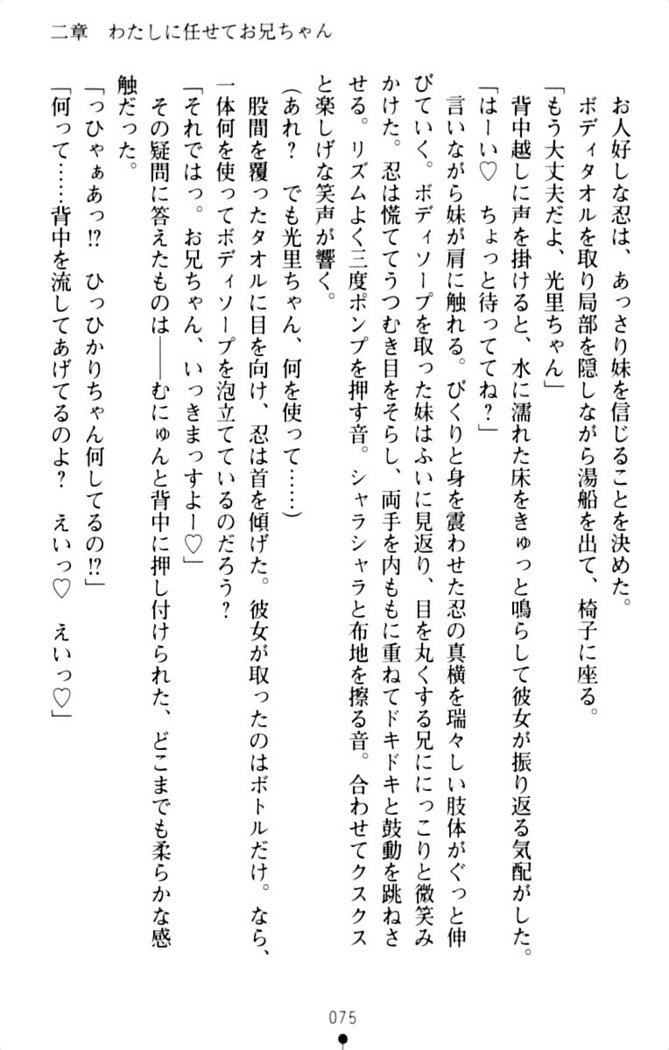 二章　わたしに任せてお兄ちゃん
　お人好しな忍は、あっさり妹を信じることを決めた。
　ボディタオルを取り局部を隠しながら湯船を出て、椅子に座る。
「もう大丈夫だよ、光里ちゃん」
　背中越しに声を掛けると、水に濡れた床をきゅっと鳴らして彼女が振り返る気配がした。
「はーい♡　ちょっと待っててね？」
　言いながら妹が肩に触れる。びくりと身を震わせた忍の真横を瑞々しい肢体がぐっと伸
びていく。ボディソープを取った妹はふいに見返り、目を丸くする兄ににっこりと微笑み
かけた。忍は慌ててうつむき目をそらし、両手を内ももに重ねてドキドキと鼓動を跳ねさ
せる。リズムよく三度ポンプを押す音。シャラシャラと布地を擦る音。合わせてクスクス
と楽しげな笑声が響く。
（あれ？　でも光里ちゃん、何を使って……）
　股間を覆ったタオルに目を向け、忍は首を傾げた。彼女が取ったのはボトルだけ。なら、
一体何を使ってボディソープを泡立てているのだろう？
「それではっ。お兄ちゃん、いっきまっすよー♡」
　その疑問に答えたものは――むにゅんと背中に押し付けられた、どこまでも柔らかな感
触だった。
「っひゃぁあっ!?　ひっひかりちゃん何してるの!?」
「何って……背中を流してあげてるのよ？　えいっ♡　えいっ♡」
075